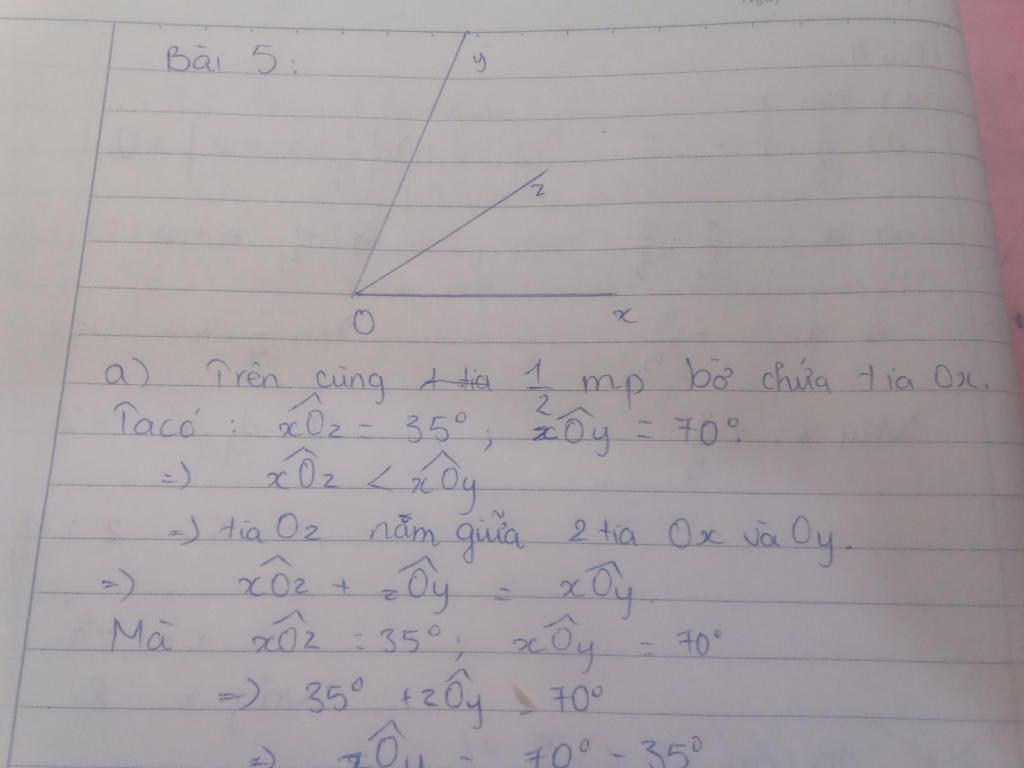 Bài 5:
y
z
O
x
a) Trên cùng tia 1/2 mp bờ chứa tia Ox.
Ta có: xÔz = 35°; xÔy = 70°.
=) xÔz < xÔy
=) tia Oz nằm giữa 2 tia Ox và Oy.
=) xÔz + zÔy = xÔy.
Mà xÔz = 35°; xÔy = 70°
=) 35° + zÔy = 70°
=) zÔy = 70° - 35°